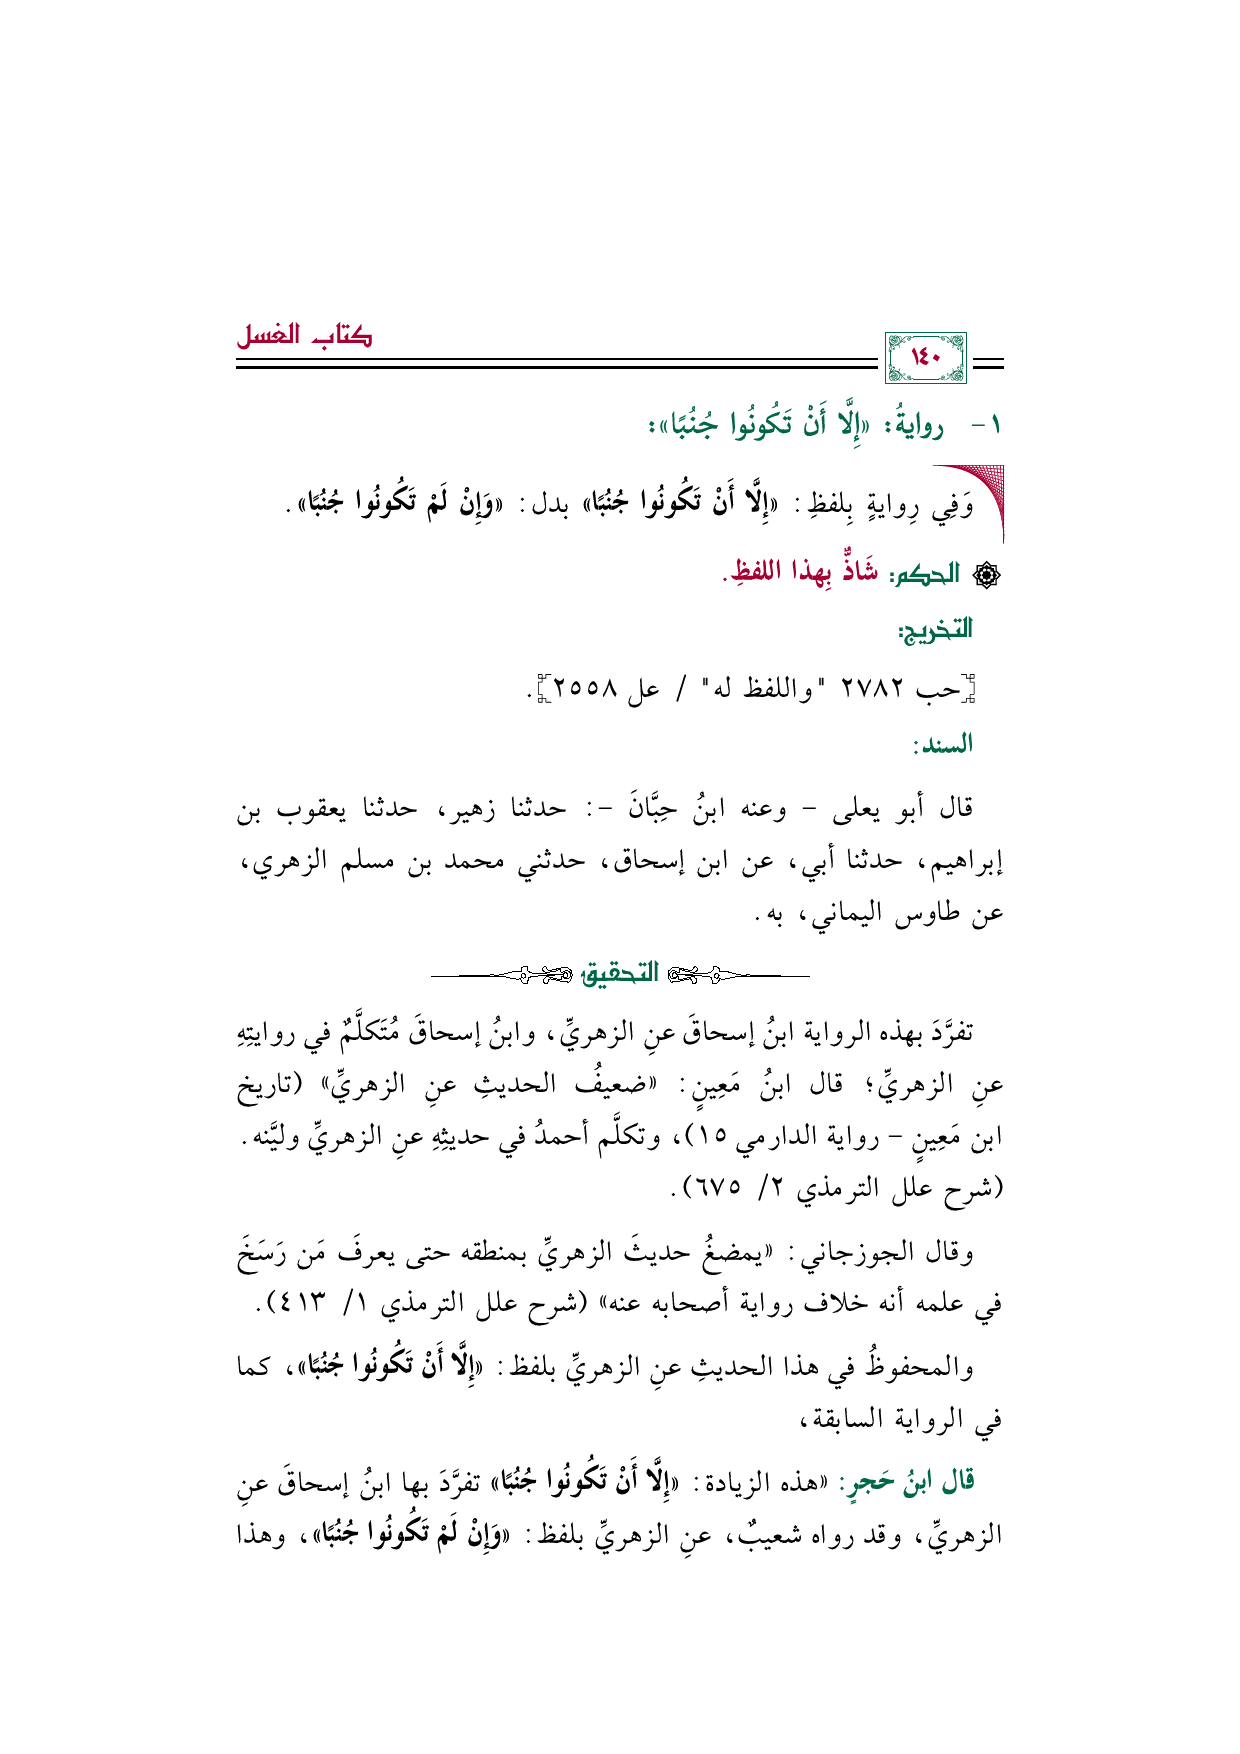 كتاب الغسل
١٤٠
١- روايةُ: «إِلَّا أَنْ تَكُونُوا جُنُبًا»:
وَفِي رِوايةٍ بِلفظِ: «إِلَّا أَنْ تَكُونُوا جُنُبًا» بدل: «وَإِنْ لَمْ تَكُونُوا جُنُبًا».
الحكم: شَاذٌّ بِهذا اللفظِ.
التخريج:
[حب ٢٧٨٢ "واللفظ له" / عل ٢٥٥٨].
السند:
قال أبو يعلى - وعنه ابنُ حِبَّانَ -: حدثنا زهير، حدثنا يعقوب بن
إبراهيم، حدثنا أبي، عن ابن إسحاق، حدثني محمد بن مسلم الزهري،
عن طاوس اليماني، به.
التحقيق
تفرَّدَ بهذه الرواية ابنُ إسحاقَ عنِ الزهريِّ، وابنُ إسحاقَ مُتَكلَّمٌ في روايتِهِ
عنِ الزهريِّ؛ قال ابنُ مَعِينٍ: «ضعيفُ الحديثِ عنِ الزهريِّ» (تاريخ
ابن مَعِينٍ - رواية الدارمي ١٥)، وتكلَّم أحمدُ في حديثِهِ عنِ الزهريِّ وليَّنه.
(شرح علل الترمذي ٢/ ٦٧٥).
وقال الجوزجاني: «يمضغُ حديثَ الزهريِّ بمنطقه حتى يعرفَ مَن رَسَخَ
في علمه أنه خلاف رواية أصحابه عنه» (شرح علل الترمذي ١/ ٤١٣).
والمحفوظُ في هذا الحديثِ عنِ الزهريِّ بلفظ: «إِلَّا أَنْ تَكُونُوا جُنُبًا»، كما
في الرواية السابقة،
قال ابنُ حَجرٍ: «هذه الزيادة: «إِلَّا أَنْ تَكُونُوا جُنُبًا» تفرَّدَ بها ابنُ إسحاقَ عنِ
الزهريِّ، وقد رواه شعيبٌ، عنِ الزهريِّ بلفظ: «وَإِنْ لَمْ تَكُونُوا جُنُبًا»، وهذا